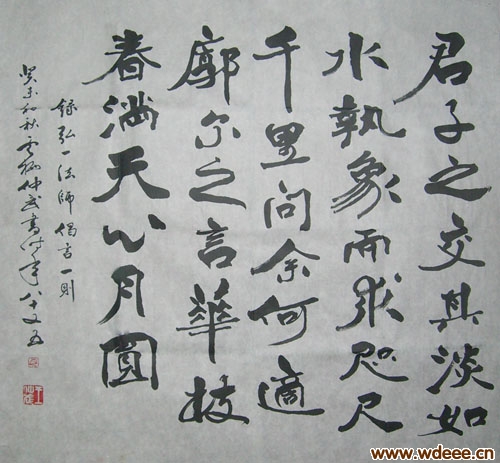 君子之交其淡如
水執象而求咫尺
千里问余何適
廓尔之言華枝
春满天心月圓
録弘一法師偈言一則
癸未秋仲書时年八十又五
www.wdeee.cn